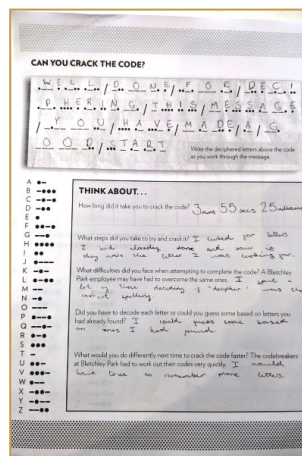 CAN YOU CRACK THE CODE?
WELL / DONE / FOR / DECI
PHERING / THIS / MESSAGE
/ YOU / HAVE / MADE / A / G
OOD / START
Write the deciphered letters above the code
as you work through the message
A •–
B –•••
C –•–•
D –••
E •
F ••–•
G ––•
H ••••
I ••
J •–––
K –•–
L •–••
M ––
N –•
O –––
P •––•
Q ––•–
R •–•
S •••
T –
U ••–
V •••–
W •––
X –••–
Y –•––
Z ––••
THINK ABOUT...
How long did it take you to crack the code? 3 mins 55 secs 25
What steps did you take to try and crack it? I looked for letters
I had already done and saw if
they were the letter I was looking for.
What difficulties did you face when attempting to complete the code? A Bletchley
Park employee may have had to overcome the same. I spent a
lot of time deciding if 'decipher' was the
correct spelling.
Did you have to decode each letter or could you guess some based on letters you
had already found? I could guess some based
on ones I had found.
What would you do differently next time to crack the code faster? The codebreakers
at Bletchley Park had to work out their codes very quickly. I would
have tried to remember more letters.